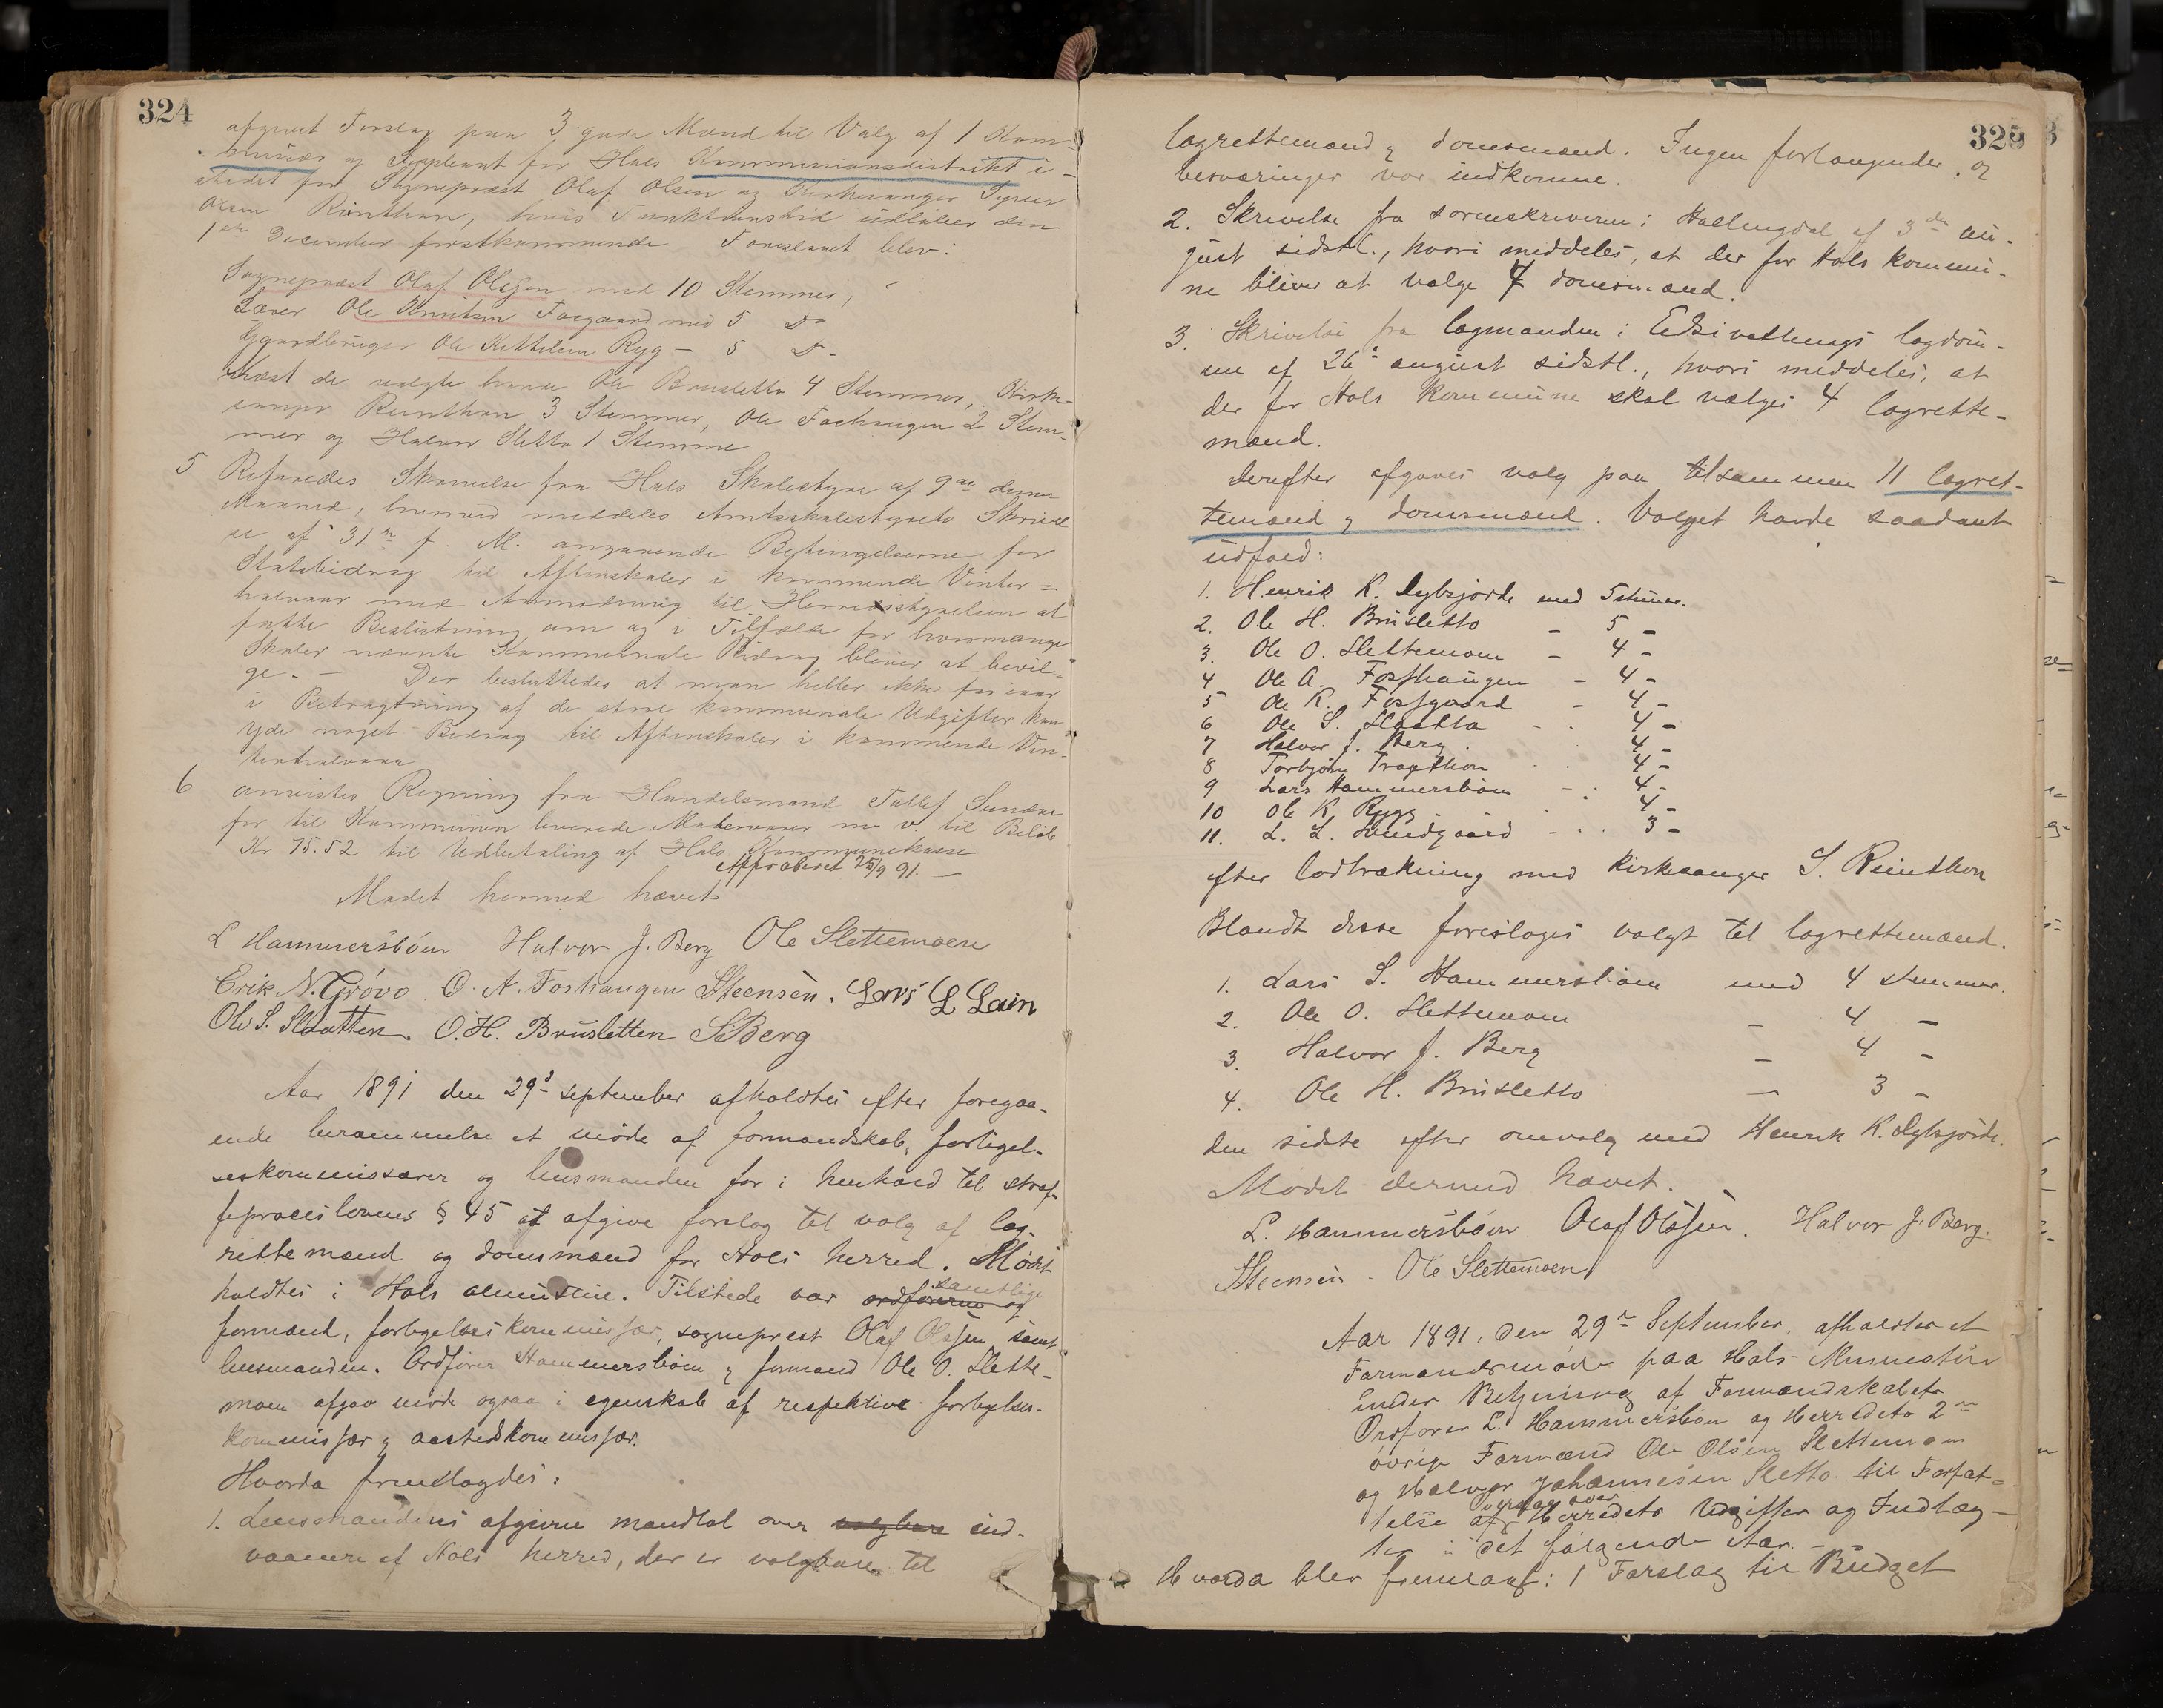 324
afgivet Forslag paa 3 gode Mænd til Valg af 1 Kom-
missær og Suppleant for Hols Kommissionsdistrikt i-
stedet for Sognepræst Olaf Olsen og Kirkesanger Syver
Olsen Reinthon, hvis Funktionstid udløber den
1ste December førstkommende Foreslaaet blev:
Sognepræst Olaf Olssen med 10 Stemmer,
Lærer Ole Knutsen Fosgaard med 5 Do
Gaardbruger Ole Kittelsen Ryg – 5 D-
Næst de valgte havde Ole Brusletto 4 Stemmer, Kirke-
sanger Reinthon 3 Stemmer, Ole Foshaugen 2 Stem-
mer og Halvor Sletto 1 Stemme
5 Refereredes Skrivelse fra Hols Skolestyre af 9de denne
Maaned, hvorved meddeles Amtsskolestyrets Skrivel
se af 31te f. M. angaaende Betingelserne for
Statsbidrag til Aftenskoler i kommende Vinter=
halvaar med Anmodning til Herredsstyrelsen at
fatte Beslutning om og i Tilfælde for hvormange
Skoler nævnte Kommunale Bidrag bliver at bevil-
ge. – Der besluttedes at man heller ikke for iaar
i Betragtning af de store kommunale Udgifter kan
yde noget Bidrag til Aftenskoler i kommende Vin-
terhalvaar
6 anvistes Regning fra Handelsmand Tollef Sundre
for til Kommunen leverede Matervarer m v. til Beløb
Kr 75.52 til Udbetaling af Hols Kommunekasse
Approberet 25/9 91. –
Mødet hermed hævet
L Hammersbøen Halvor J. Berg Ole Slettemoen
Erik N. Grøvo O. A. Foshaugen Steensen. Lars L Lein
Ole S. Slaatten O. H. Brusletten S Berg
Aar 1891 den 29de september afholdtes efter foregaa-
ende berammelse et møde af formandskab, forligel-
seskommissærer og lensmanden for i henhold til straf-
feproceslovens § 45 at afgive forslag til valg af lag-
rettemænd og domsmænd for Hols herred. Mødet
holdtes i Hols almustue. Tilstede var ordføreren og samtlige
formænd, forligelseskommissær, sogneprest Olaf Olssen samt
lensmanden. Ordfører Hammersbøen & formand Ole O. Slette-
moen afgav møde ogsaa i egenskab af respektive forligelses-
kommissær & aastedskommissær.
Hvorda fremlagdes:
1. Lensmandens afgivne mandtal over valgbare ind-
vaanere af Hols herred, der er valgbare til
325
lagrettemænd & domsmænd. Ingen forlangender og
besværinger var indkomne.
2. Skrivelse fra sorenskriveren i Hallingdal af 3die au-
gust sidstl., hvori meddeles, at der for Hols kommu-
ne bliver at vælge 7 domsmænd.
3. Skrivelse fra lagmanden i Eidsivathings lagdøm-
me af 26de august sidstl., hvori meddeles, at
der for Hols kommune skal vælges 4 lagrette-
mænd.
Derefter afgaves valg paa tilsammen 11 lagret-
temænd & domsmænd. Valget havde saadant
udfald:
1. Henrik K. Dybsjorde med 5 stemr.
2. Ole H. Brusletto – 5 –
3. Ole O. Slettemoen – 4 –
4 Ole A. Fosshaugen – 4 –
5 Ole K. Fossgaard – 4 –
6 Ole S. Slaatto – 4 –
7 Halvor J. Berg 4 –
8 Torbjørn Tragthon 4 –
9 Lars Hammersbøen – 4 –
10 Ole K Rygg 4 –
11. L. L. Sundgaard – 3 –
efter lodtrækning med kirkesanger S. Reinthon
Blandt disse foresloges valgt til lagrettemænd.
1. Lars S. Hammersbøen med 4 stemmer.
2. Ole O. Slettemoen – 4 –
3. Halvor J. Berg – 4 –
4. Ole H. Brusletto – 3 –
den sidste efter omvalg med Henrik K. Dybsjorde.
Mødet dermed hævet.
L. Hammersbøen Olaf Olssen. Halvor J. Berg.
Steensen. Ole Slettemoen
Aar 1891, den 29de September, afholdtes et
Formandsmøde paa Hols Almustue
under Betjening af Formandskabets
Ordfører L. Hammersbøen og Herredets 2de
øvrige Formænd Ole Olsen Slettemoen
og Halvor Johannesen Sletto til Forfat-
telse af Overslag over Herredets Udgifter og Indtæg-
ter i det følgende Aar. –
Hvorda blev fremlagt: 1 Forslag til Budget